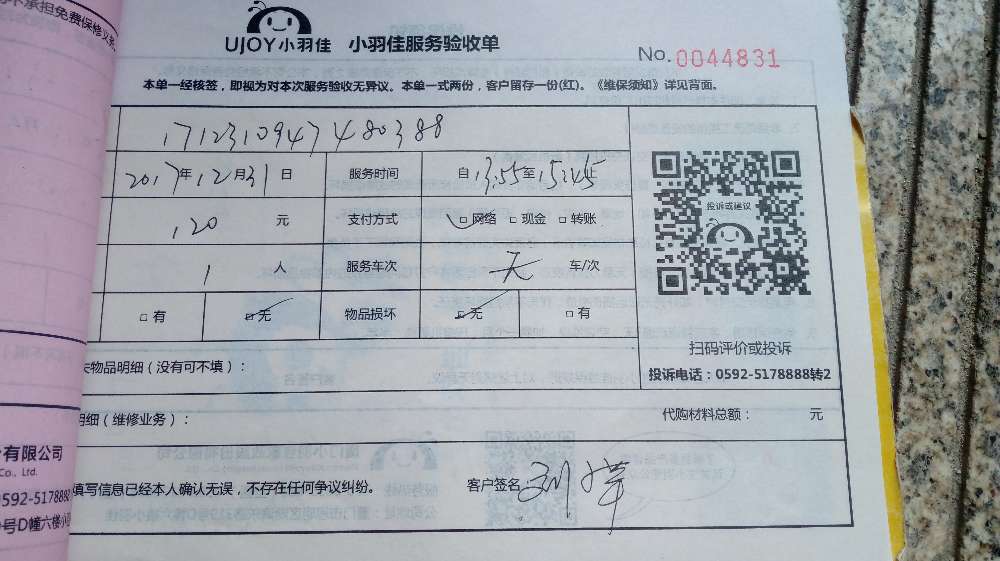 不承担免费保修义务
UJOY小羽佳 小羽佳服务验收单
No. 0044831
本单一经核签，即视为对本次服务验收无异议。本单一式两份，客户留存一份(红)。《维保须知》详见背面。
1712310947480388
2017年12月31日 服务时间 自13:55至15:45止
120元 支付方式 网络 现金 转账
投诉或建议
1人 服务车次 车/次
有 无 物品损坏 无 有
扫码评价或投诉
物品明细（没有可不填）：
投诉电话：0592-5178888转2
明细（维修业务）： 代购材料总额： 元
有限公司
Co., Ltd.
填写信息已经本人确认无误，不存在任何争议纠纷。 客户签名
0592-5178888
号D幢六楼小